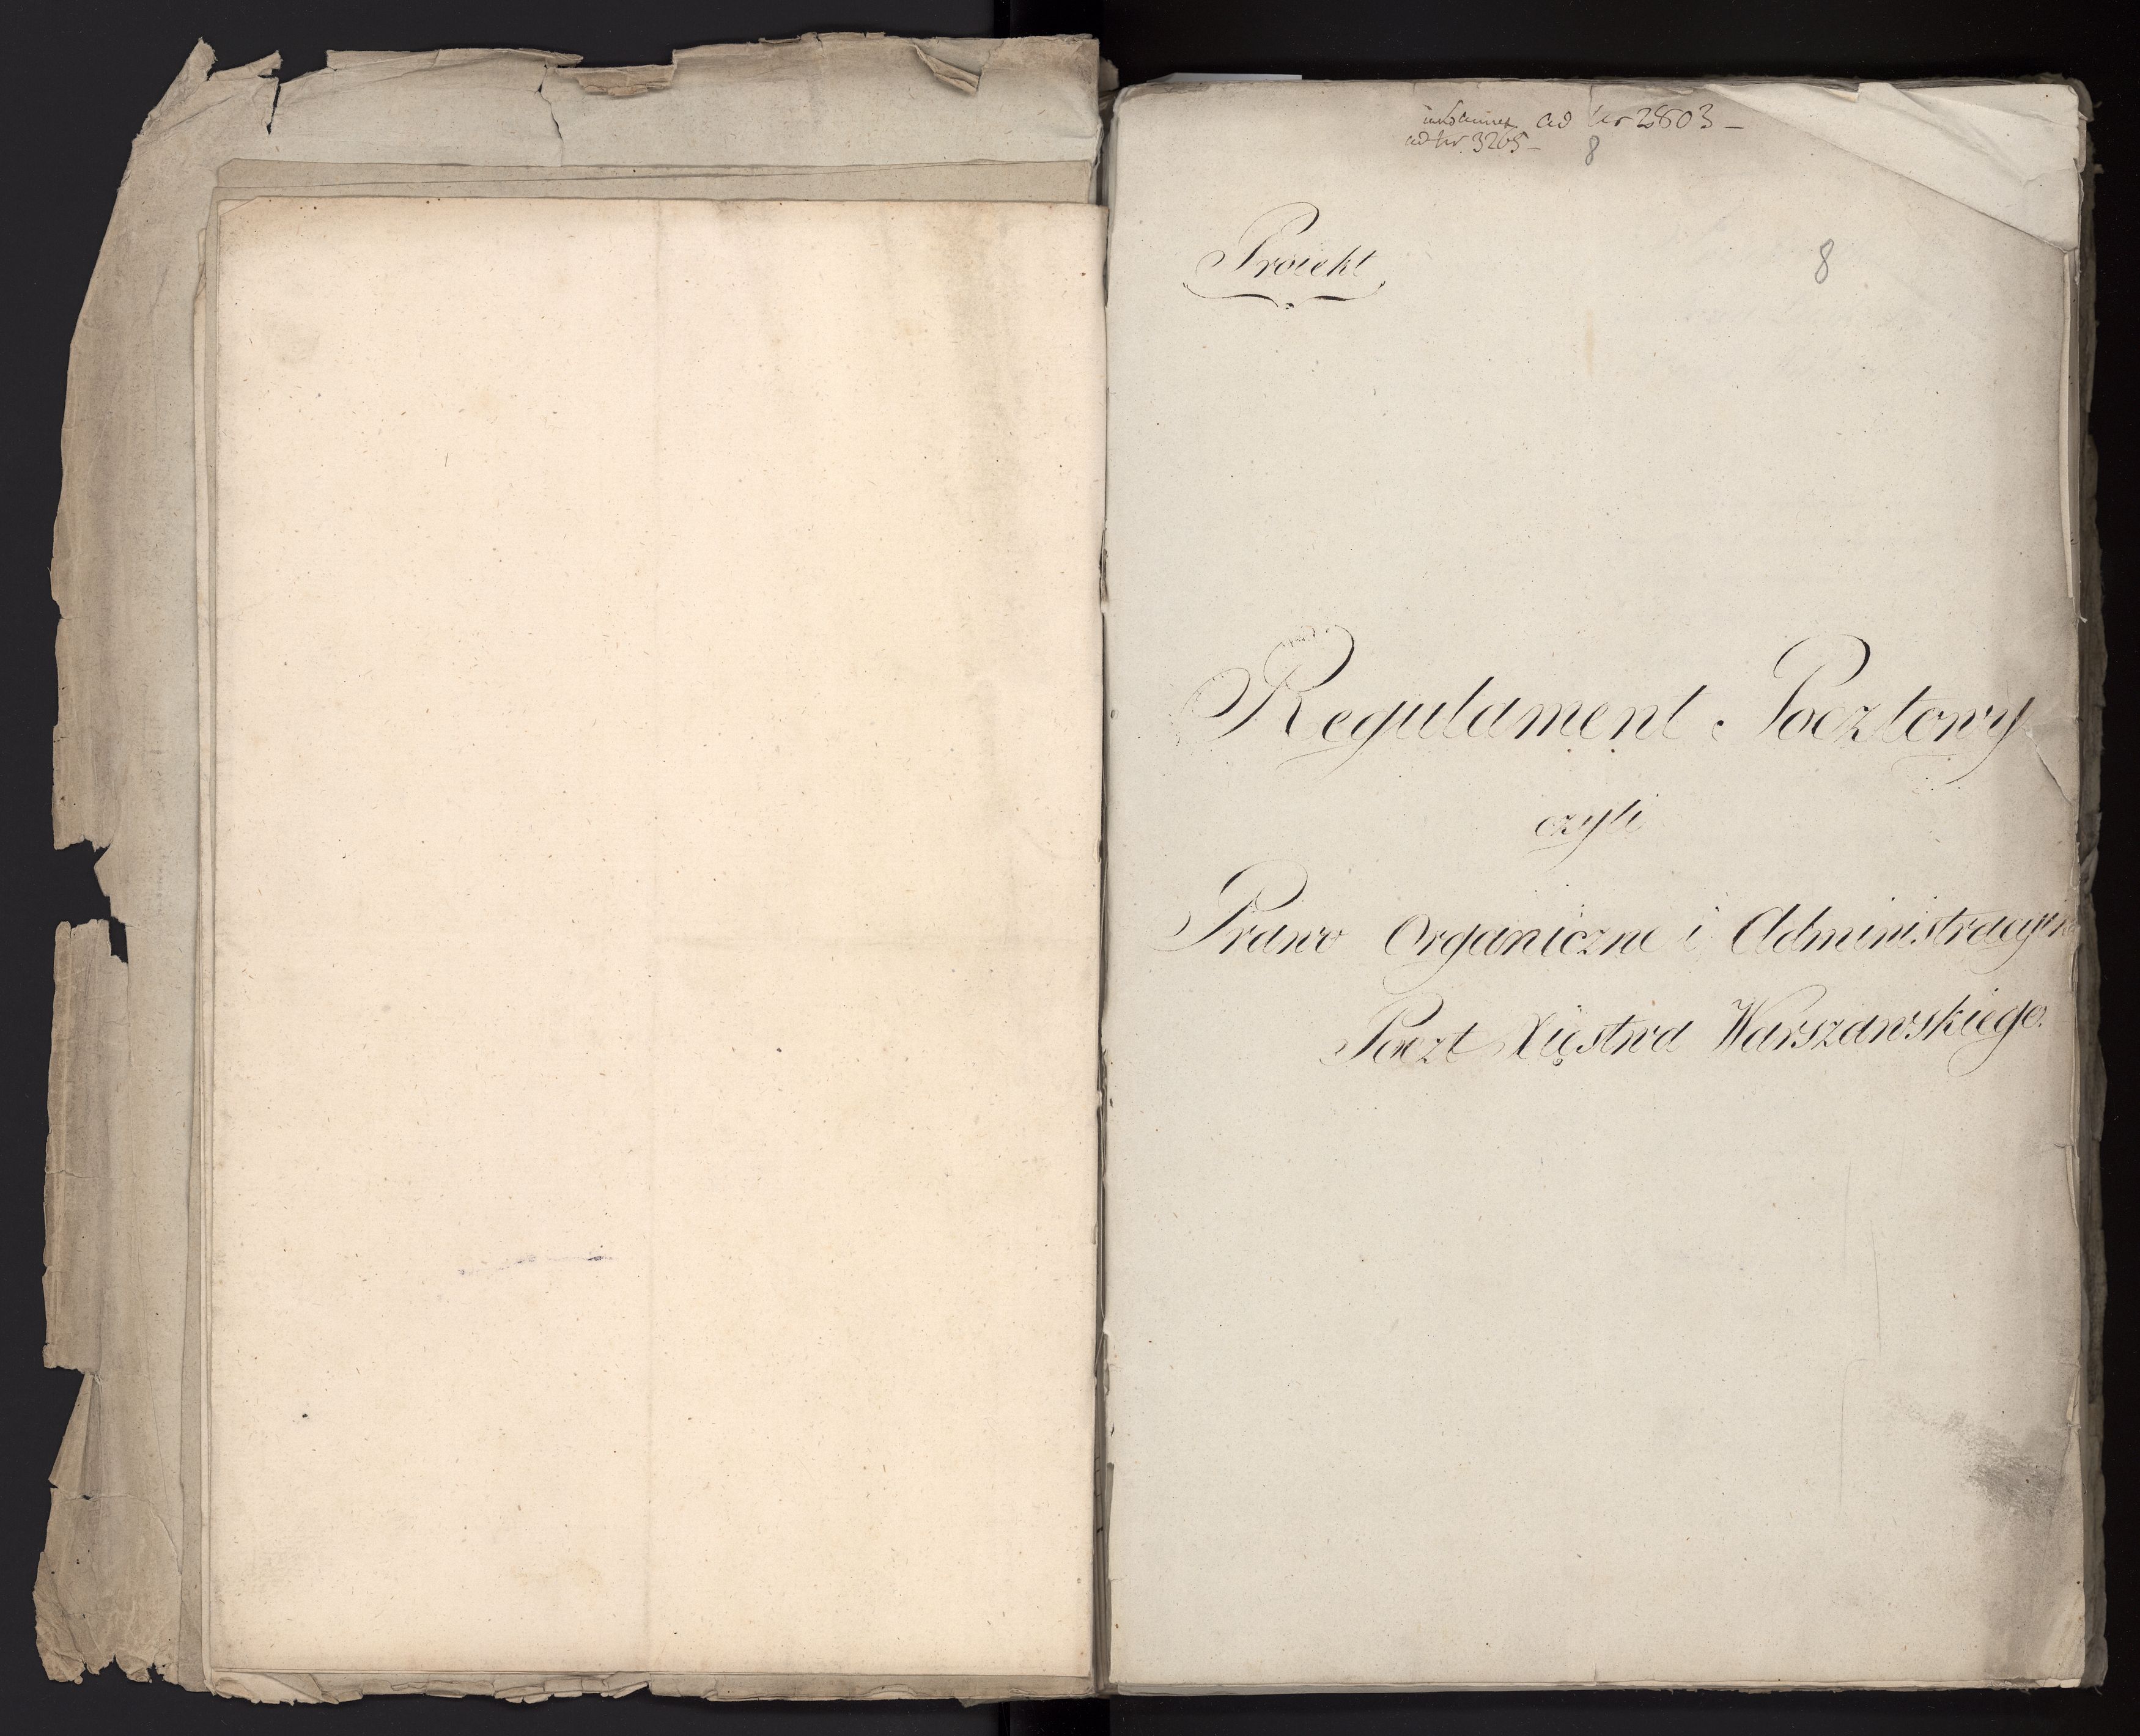 ad Nr 2803 –
ad Nr 3265 –
8
Proiekt
8
Regulament Pocztowy
czyli
Prawo Organiczne i Administracyine
Poczt Xięstwa Warszawskiego.